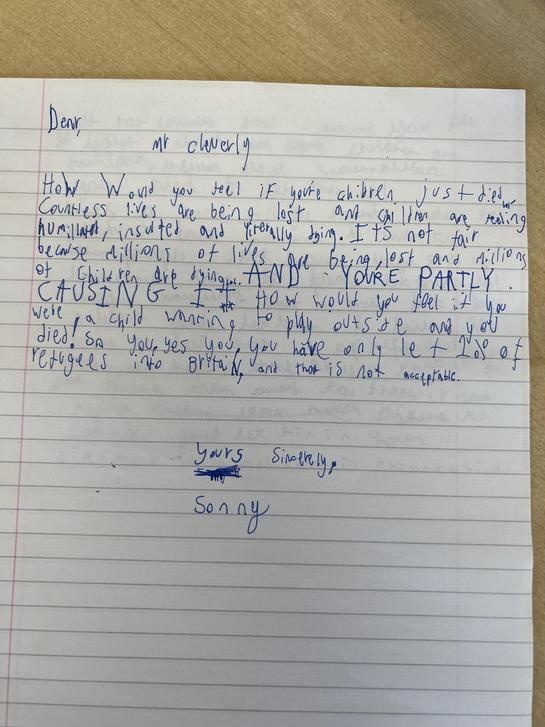 Dear,
mr cleverly
How Would you feel if you're children just died.
Countless lives are being lost and children are feeling
humiliated, insulted and literally dying. It's not fair
because millions of lives are being lost and millions
of children are dying... AND YOU'RE PARTLY
CAUSING IT How would you feel if you
we're a child wanting to play outside and you
died! So you, yes you, you have only let of
refugees into Britain, and that is not acceptable.
Yours Sincerely,
Sonny